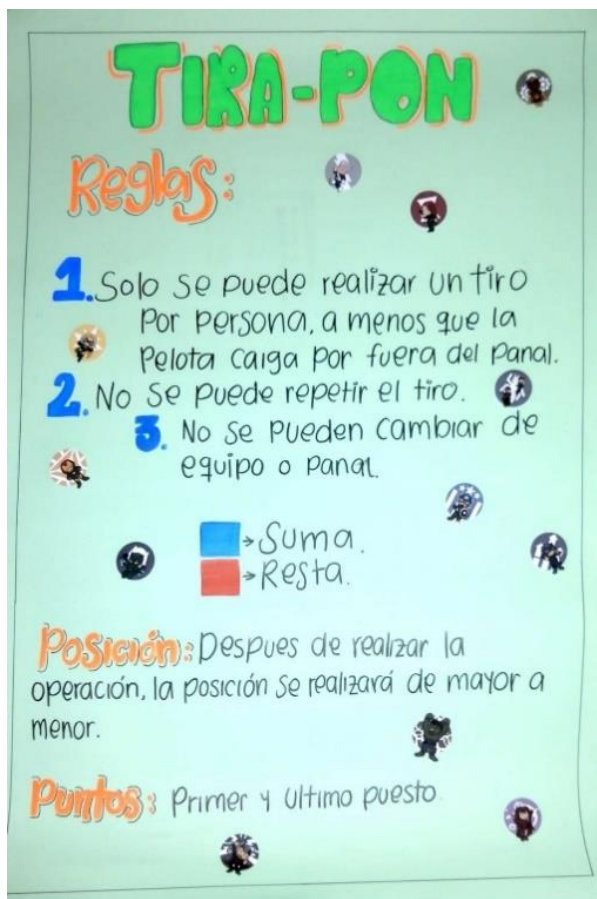 TIRA-PON
Reglas:
1. Solo se puede realizar un tiro
por persona, a menos que la
pelota caiga por fuera del panal.
2. No se puede repetir el tiro.
3. No se pueden cambiar de
equipo o panal.
→ Suma.
→ Resta.
Posición: Despues de realizar la
operación, la posición se realizará de mayor a
menor.
Puntos: Primer y ultimo puesto.